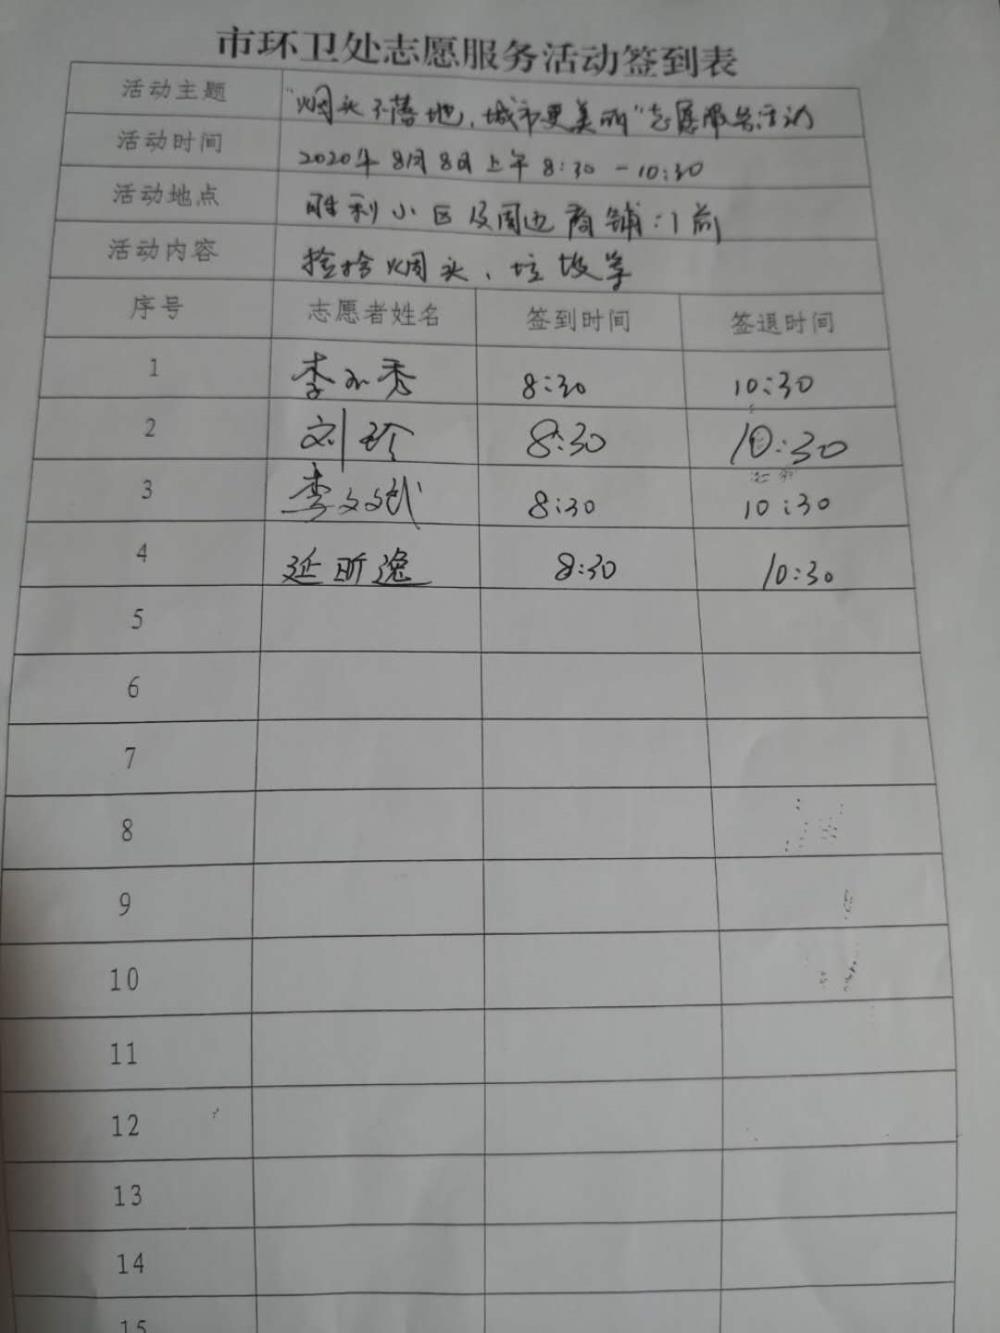 市环卫处志愿服务活动签到表
活动主题 “烟头不落地，城市更美丽”志愿服务活动
活动时间 2020年8月8日上午8:30-10:30
活动地点 胜利小区及周边商铺门前
活动内容 捡拾烟头、垃圾等
序号 志愿者姓名 签到时间 签退时间
1 李小秀 8:30 10:30
2 刘珍 8:30 10:30
3 李文斌 8:30 10:30
4 延昕逸 8:30 10:30
5
6
7
8
9
10
11
12
13
14
15